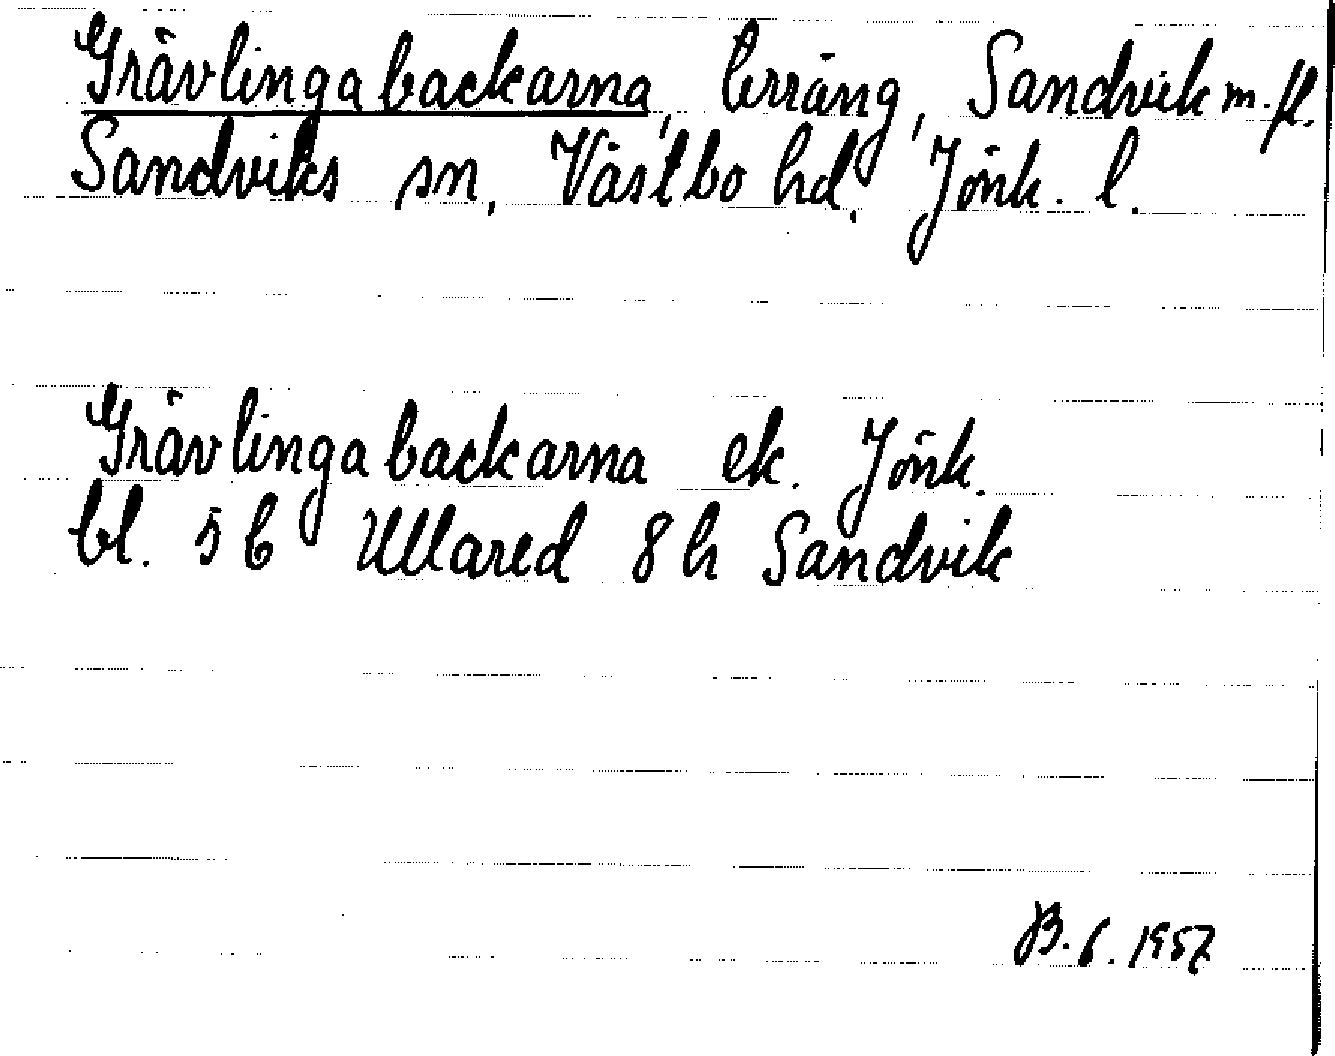 Grävlingabackarna, terräng, Sandvik m.fl.
Sandviks sn, Västbo hd, Jönk. l.
Grävlingabackarna ek. Jönk.
bl. 5 C Ullared 8 h Sandvik
B. 6. 1957